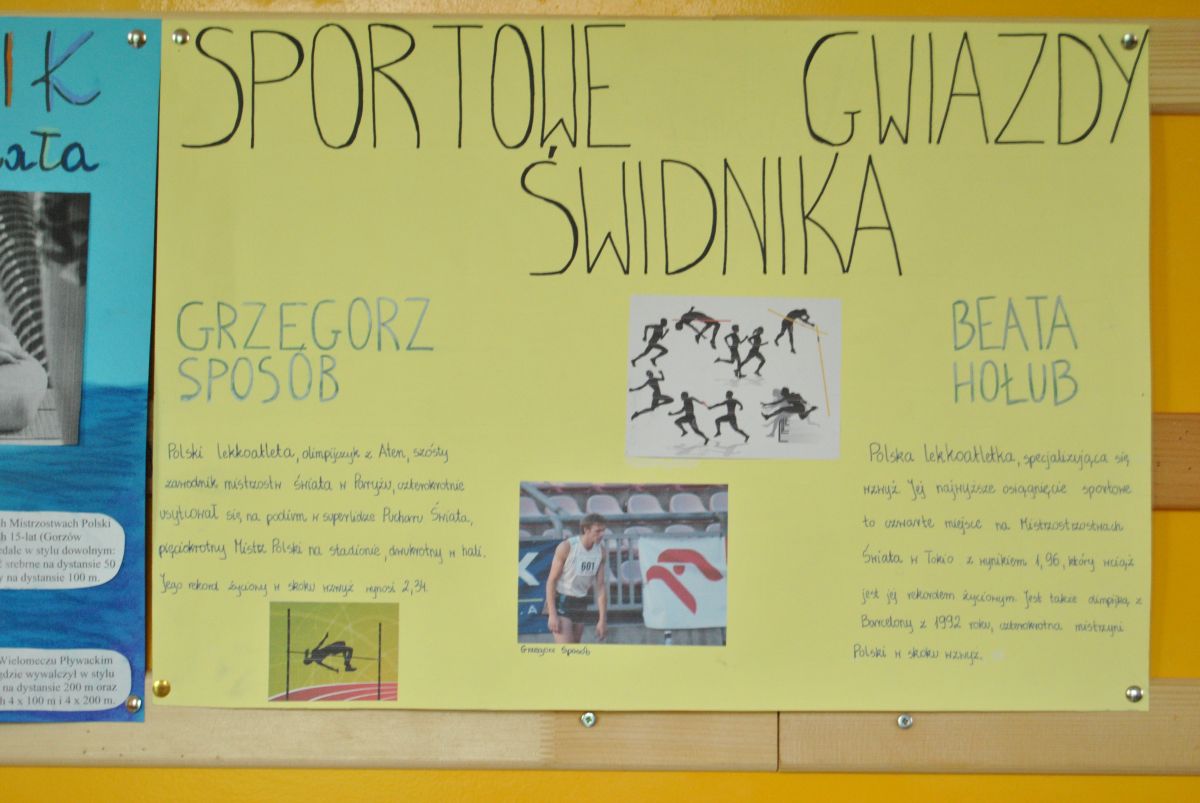 IK
ata
SPORTOWE GWIAZDY
ŚWIDNIKA
GRZEGORZ
SPOSÓB
BEATA
HOŁUB
Polski lekkoatleta, olimpijczyk z Aten, szósty
zawodnik mistrzostw świata w Paryżu, czterokrotnie
usytuował się na podium w superlidze Pucharu Świata,
pięciokrotny Mistrz Polski na stadionie, dwukrotny w hali.
Jego rekord życiowy w skoku wzwyż wynosi 2,34.
601
Grzegorz Sposób
Polska lekkoatletka, specjalizująca się
wzwyż Jej najwyższe osiągnięcie sportowe
to czwarte miejsce na Mistrzostrzostwach
Świata w Tokio z wynikiem 1,96, który wciąż
jest jej rekordem życiowym. Jest także olimpijką z
Barcelony z 1992 roku, czterokrotna mistrzyni
Polski w skoku wzwyż.
h Mistrzostwach Polski
h 15-lat (Gorzów
edale w stylu dowolnym:
ż srebrne na dystansie 50
y na dystansie 100 m.
Wielomeczu Pływackim
ędzie wywalczył w stylu
na dystansie 200 m oraz
h 4 x 100 m i 4 x 200 m.